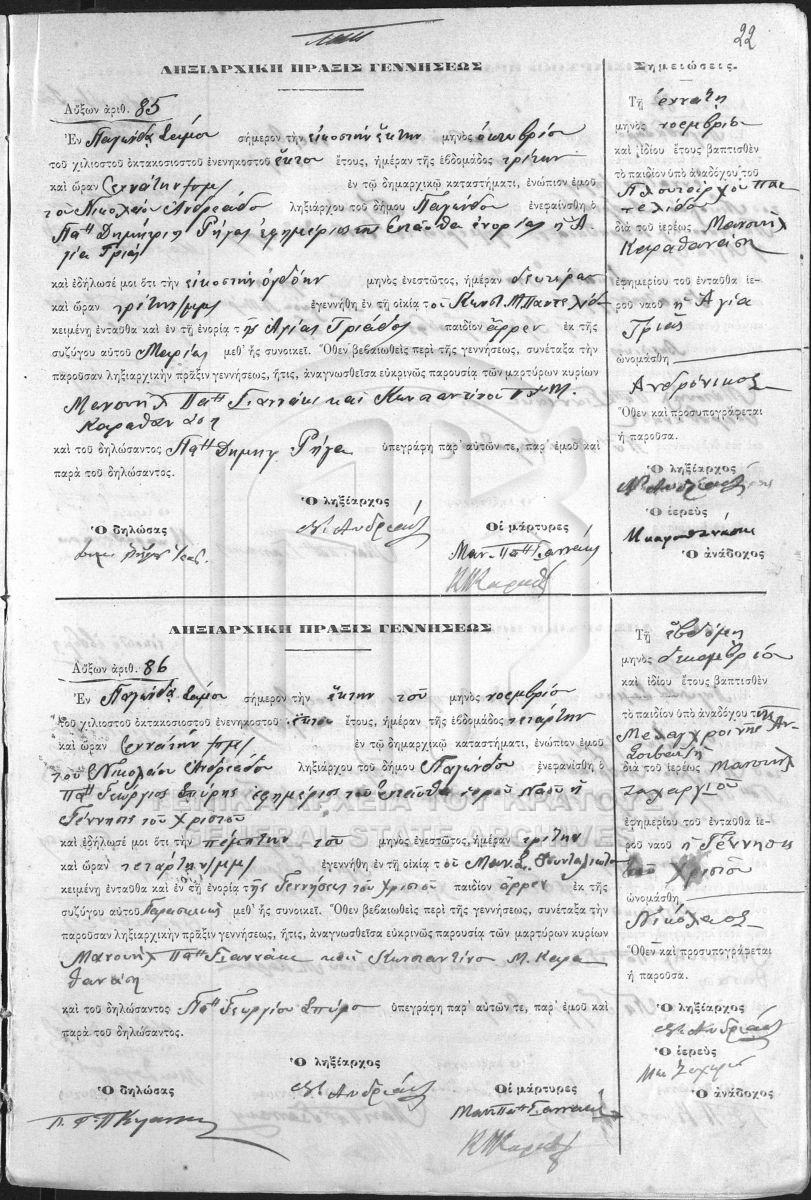 22
ΛΗΞΙΑΡΧΙΚΗ ΠΡΑΞΙΣ ΓΕΝΝΗΣΕΩΣ
Αὔξων ἀριθ. 85
Ἐν Παγώνδᾳ Σάμου σήμερον τὴν εἰκοστὴν ἕκτην μηνὸς ὀκτωβρίου
τοῦ χιλιοστοῦ ὀκτακοσιοστοῦ ἐνενηκοστοῦ ἕκτου ἔτους, ἡμέραν τῆς ἑβδομάδος τρίτην
καὶ ὥραν ἐν τῷ δημαρχικῷ καταστήματι, ἐνώπιον ἐμοῦ
τοῦ Νικολάου Ἀνδρεάδου ληξιάρχου τοῦ δήμου Παγώνδου ἐνεφανίσθη ὁ
Παπᾶ Δημήτριος Ρήγας ἐφημέριος τῆς ἐνταῦθα ἐνορίας ἡ Ἁ
γία Τριὰς
καὶ ἐδήλωσέ μοι ὅτι τὴν εἰκοστὴν ὀγδόην μηνὸς ἐνεστῶτος, ἡμέραν δευτέραν
καὶ ὥραν τρίτην μμ ἐγεννήθη ἐν τῇ οἰκίᾳ τοῦ Κωνστ. Μ. Παντελιοῦ
κειμένῃ ἐνταῦθα καὶ ἐν τῇ ἐνορίᾳ τῆς Ἁγίας Τριάδος παιδίον ἄρρεν ἐκ τῆς
συζύγου αὐτοῦ Μαρίας μεθ' ἧς συνοικεῖ. Ὅθεν βεβαιωθεὶς περὶ τῆς γεννήσεως, συνέταξα τὴν
παροῦσαν ληξιαρχικὴν πρᾶξιν γεννήσεως, ἥτις, ἀναγνωσθεῖσα εὐκρινῶς παρουσίᾳ τῶν μαρτύρων κυρίων
Μανουὴλ Παπᾶ Γιαννάκη καὶ Κωνσταντίνου Μ.
Καραθανάση
καὶ τοῦ δηλώσαντος Παπᾶ Δημητρ Ρήγα ὑπεγράφη παρ' αὐτῶν τε, παρ' ἐμοῦ καὶ
παρὰ τοῦ δηλώσαντος.
Ὁ ληξίαρχος
Ν. Ἀνδρεάδης
Ὁ δηλώσας
Οἱ μάρτυρες
Μαν. Παπᾶ Γιαννάκης
Σημειώσεις.
Τῇ ἐννάτῃ
μηνὸς νοεμβρίου
καὶ ἰδίου ἔτους βαπτισθὲν
τὸ παιδίον ὑπὸ ἀναδόχου τοῦ
Πλουτάρχου Πα
τελίδου
διὰ τοῦ ἱερέως Μανουὴλ
Καραθανάση
ἐφημερίου τοῦ ἐνταῦθα ἱε-
ροῦ ναοῦ ἡ Ἁγία
Τριὰς
ὠνομάσθη
Ἀνδρόνικος
Ὅθεν καὶ προσυπογράφεται
ἡ παροῦσα.
Ὁ ληξίαρχος
Ν. Ἀνδρεάδης
Ὁ ἱερεὺς
Μ Καραθανάσης
Ὁ ἀνάδοχος
ΛΗΞΙΑΡΧΙΚΗ ΠΡΑΞΙΣ ΓΕΝΝΗΣΕΩΣ
Αὔξων ἀριθ. 86
Ἐν Παγώνδᾳ Σάμου σήμερον τὴν ἕκτην τοῦ μηνὸς νοεμβρίου
τοῦ χιλιοστοῦ ὀκτακοσιοστοῦ ἐνενηκοστοῦ ἕκτου ἔτους, ἡμέραν τῆς ἑβδομάδος τετάρτην
καὶ ὥραν ἐννάτην πμ ἐν τῷ δημαρχικῷ καταστήματι, ἐνώπιον ἐμοῦ
τοῦ Νικολάου Ἀνδρεάδου ληξιάρχου τοῦ δήμου Παγώνδου ἐνεφανίσθη ὁ
Παπᾶ Γεώργιος Σπύρης ἐφημέριος τοῦ ἐνταῦθα ἱεροῦ Ναοῦ ἡ
Γέννησις τοῦ Χριστοῦ
ΓΕΝΙΚΑ ΑΡΧΕΙΑ ΤΟΥ ΚΡΑΤΟΥΣ
GENERAL STATE ARCHIVES
καὶ ἐδήλωσέ μοι ὅτι τὴν πέμπτην τοῦ μηνὸς ἐνεστῶτος, ἡμέραν τρίτην
καὶ ὥραν τετάρτην μμ ἐγεννήθη ἐν τῇ οἰκίᾳ τοῦ Μαν. Σ.
κειμένῃ ἐνταῦθα καὶ ἐν τῇ ἐνορίᾳ τῆς Γεννήσεως τοῦ Χριστοῦ παιδίον ἄρρεν ἐκ τῆς
συζύγου αὐτοῦ Παρασκευῆς μεθ' ἧς συνοικεῖ. Ὅθεν βεβαιωθεὶς περὶ τῆς γεννήσεως, συνέταξα τὴν
παροῦσαν ληξιαρχικὴν πρᾶξιν γεννήσεως, ἥτις, ἀναγνωσθεῖσα εὐκρινῶς παρουσίᾳ τῶν μαρτύρων κυρίων
Μανουὴλ Παπᾶ Γιαννάκη καὶ Κωνσταντίνου Μ. Καρα
θανάση
καὶ τοῦ δηλώσαντος Παπᾶ Γεωργίου Σπύρου ὑπεγράφη παρ' αὐτῶν τε, παρ' ἐμοῦ καὶ
παρὰ τοῦ δηλώσαντος.
Ὁ ληξίαρχος
Ν. Ἀνδρεάδης
Ὁ δηλώσας
Οἱ μάρτυρες
Μαν Παπᾶ Γιαννάκης
Τῇ ἑβδόμῃ
μηνὸς δεκεμβρίου
καὶ ἰδίου ἔτους βαπτισθὲν
τὸ παιδίον ὑπὸ ἀναδόχου τῆς
Μελαχροινῆς
διὰ τοῦ ἱερέως Μανουὴλ
Ζαχαρίου
ἐφημερίου τοῦ ἐνταῦθα ἱε-
ροῦ ναοῦ ἡ Γέννησις
τοῦ Χριστοῦ
ὠνομάσθη
Νικόλαος
Ὅθεν καὶ προσυπογράφεται
ἡ παροῦσα.
Ὁ ληξίαρχος
Ν. Ἀνδρεάδης
Ὁ ἱερεὺς
Ὁ ἀνάδοχος